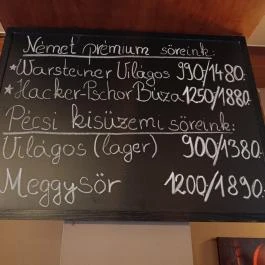 Német prémium söreink:
*Warsteiner Világos 990/1480.-
*Hacker-Pschor Búza 1250/1880.-
Pécsi kisüzemi söreink:
Világos (lager) 900/1380.-
Meggysör 1200/1890.-